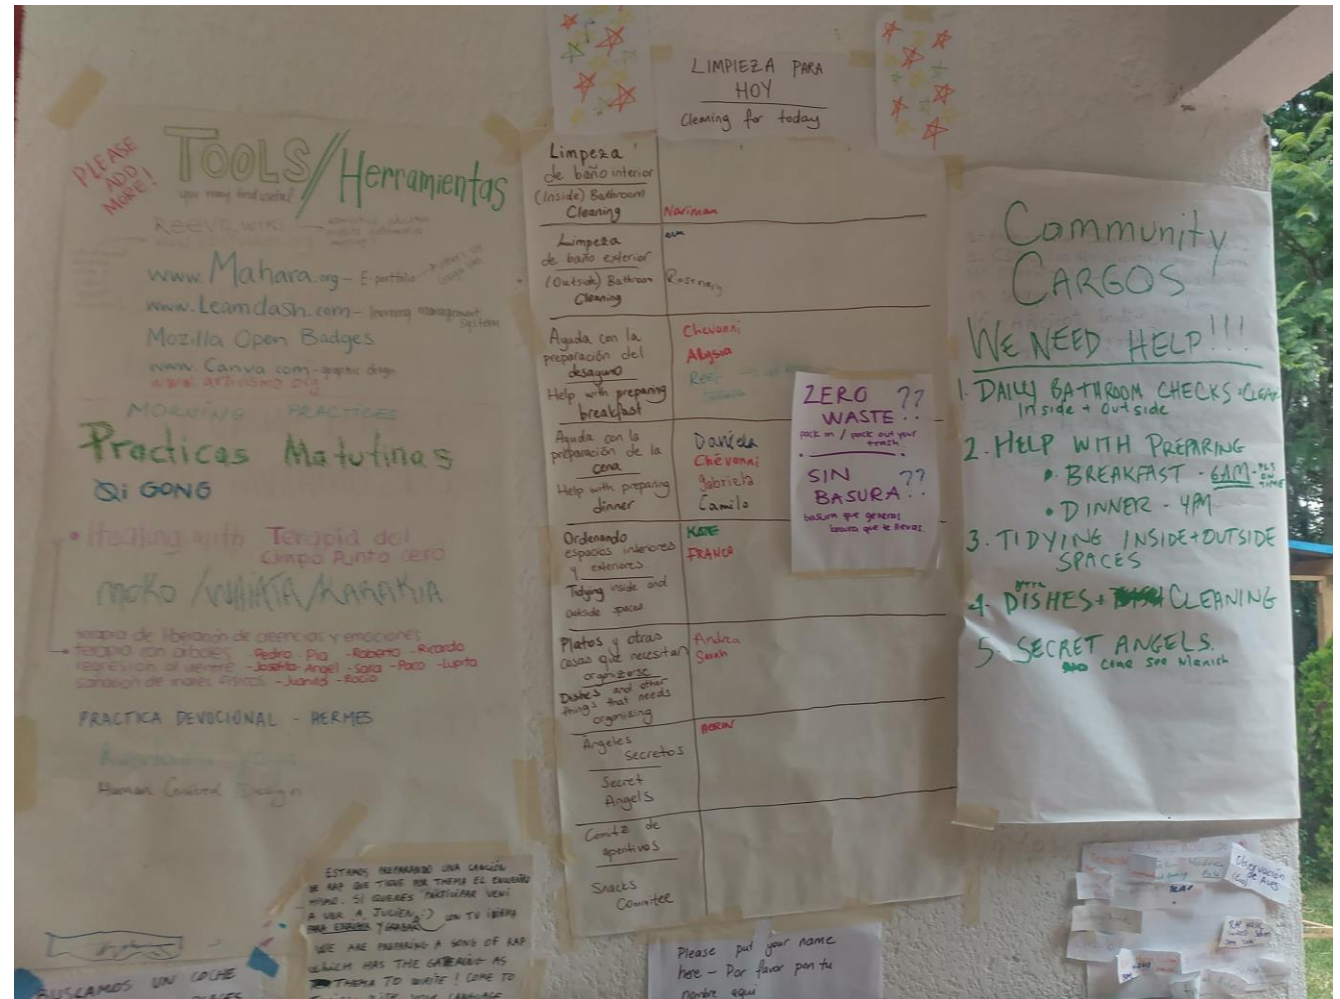 PLEASE
ADD
MORE!
TOOLS/Herramientas
you may find useful
www.Mahara.org - E-portfolio
www.Learndash.com - learning management
system
Mozilla Open Badges
www.Canva.com - graphic design
www.artivismo.org
MORNING PRACTICES
Practicas Matutinas
Qi GONG
• Healing with Terapia del
Campo Punto Cero
MOKO / WAIATA / KARAKIA
terapia de liberación de creencias y emociones
terapia con arboles - Pedro - Pia - Roberto - Ricardo
regresión al vientre - Josefa - Angel - Sara - Paco - Lupita
sanación de males físicos - Juanita - Rocio
PRACTICA DEVOCIONAL - HERMES
Kundalini Yoga
Human Centred Design
BUSCAMOS UN COCHE
ESTAMOS PREPARANDO UNA CANCIÓN
DE RAP QUE TIENE POR THEMA EL ENCUENTRO
MISMO. SI QUIERES PARTICIPAR VENI
A VER A JULIEN :) CON TU IDIOMA
PARA ESCRIBIR Y GRABAR
WE ARE PREPARING A SONG OF RAP
WHICH HAS THE GATHERING AS
THEMA TO WRITE! COME TO
LIMPIEZA PARA
HOY
Cleaning for today
Limpeza
de baño interior
(Inside) Bathroom
Cleaning
Nariman
Limpeza
de baño exterior
(Outside) Bathroom
Cleaning
eva
Rosemary
Ayuda con la
preparación del
desayuno
Help with preparing
breakfast
Chevanni
Alysia
Reef
Ayuda con la
préparación de la
cena
Help with preparing
dinner
Daniela
Chevanni
gabriela
Camilo
Ordenando
espacios interiores
y exteriores.
Tidying inside and
outside spaces
KATE
FRANCA
Platos y otras
cosas que necesitan
organizarse
Dishes and other
things that needs
organising
Andrea
Sarah
Angeles
Secretos
Secret
Angels
AERIN
Comité de
aperitivos
Snacks
Comitee
Please put your name
here - Por favor pon tu
nombre aqui
ZERO ??
WASTE
pack in / pack out your
trash.
SIN ??
BASURA
basura que generas
basura que te llevas.
Community
CARGOS
WE NEED HELP!!!
1. DAILY BATHROOM CHECKS + CLEAN
Inside + Outside
2. HELP WITH PREPARING
• BREAKFAST - 6AM - PLS
ON
TIME
• DINNER - 4PM
3. TIDYING INSIDE + OUTSIDE
SPACES
4. DISHES + CLEANING
5. SECRET ANGELS.
come see Manish
Observación
de Aves